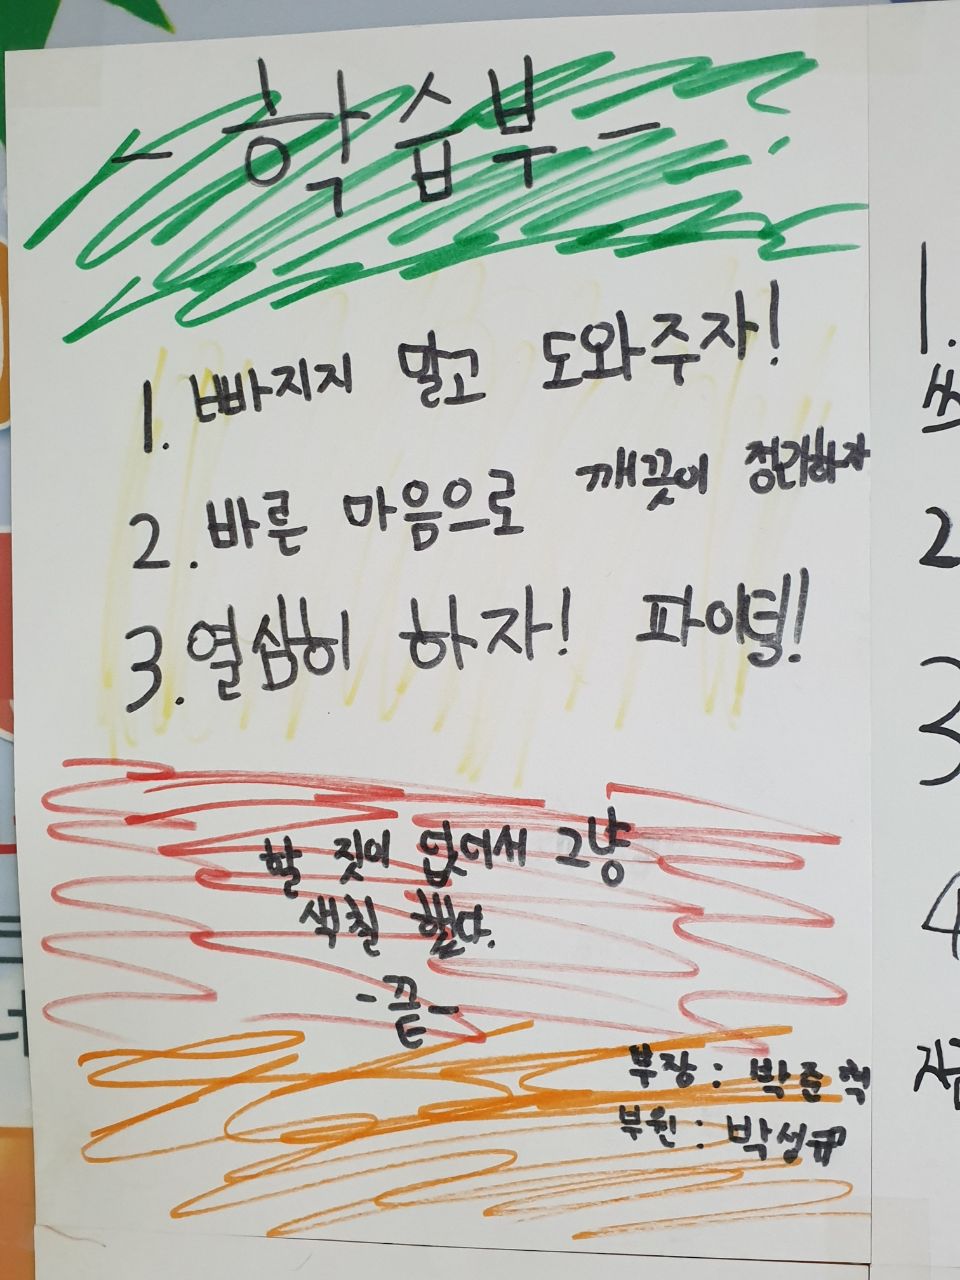 -학습부-
1. 빠지지 말고 도와주자!
2. 바른 마음으로 깨끗이 정리하자
3. 열심히 하자! 파이팅!
할 짓이 없어서 그냥
색칠 했다.
-끝-
부장 : 박준혁
부원 : 박성규
1.
2
3
4